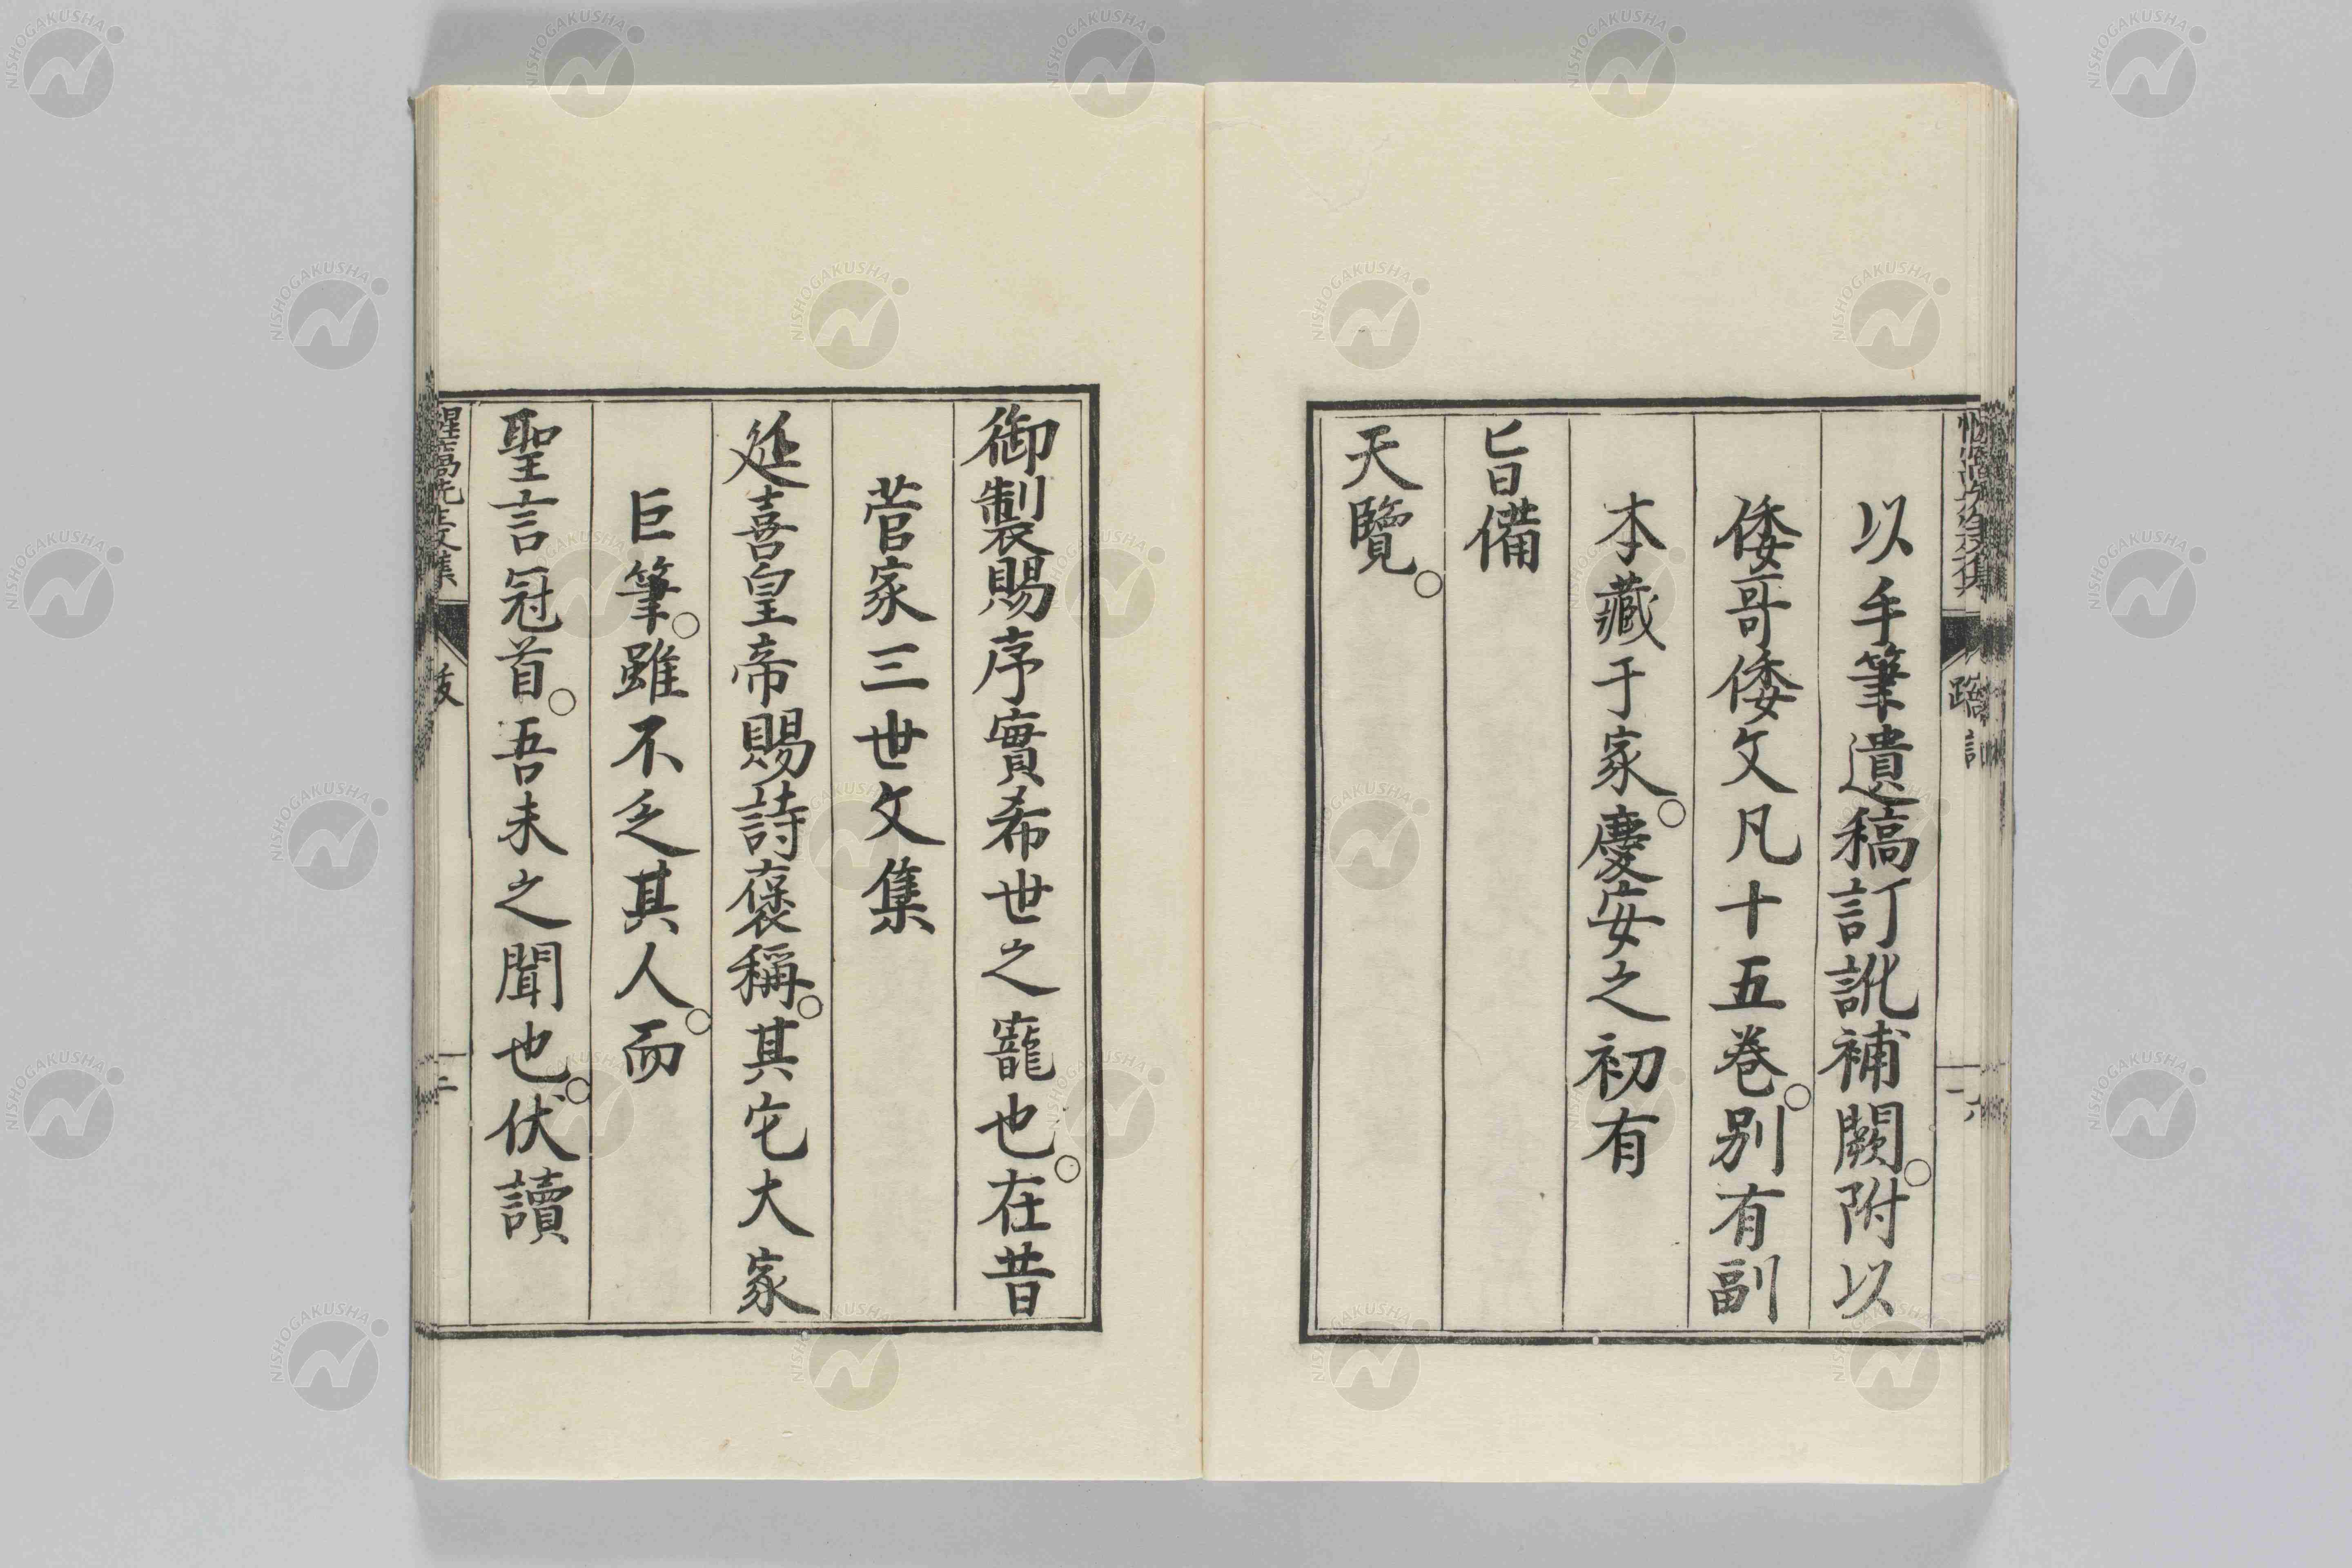 以手筆遺稿訂訛補闕。附以
倭哥倭文凡十五卷。別有副
本藏于家。慶安之初有
旨備
天覽。
御製賜序實希世之寵也。在昔
菅家三世文集
延喜皇帝賜詩褒稱。其宅大家
巨筆。雖不乏其人。而
聖言冠首。吾未之聞也。伏讀
惺窩先生文集
跋
二
NISHOGAKUSHA